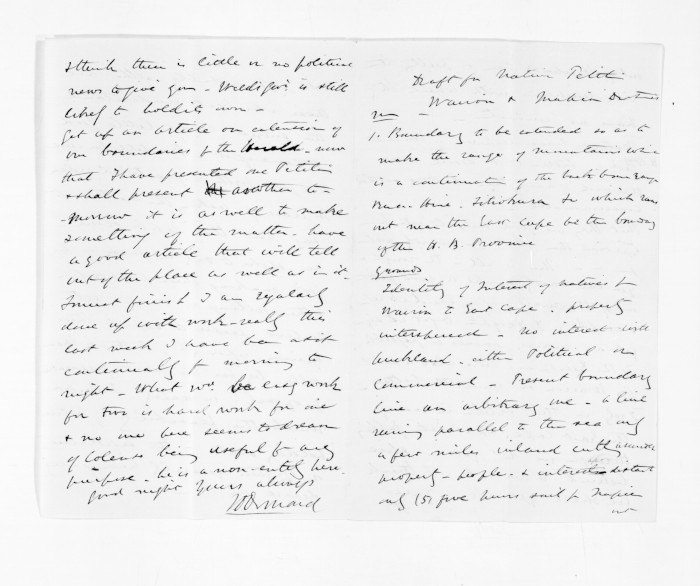 I think there is little or no political
news to give you - Weld's Govt. is still
likely to hold its own -
get up an article on extension of
our boundaries for the Herald - now
that I have presented one Petition
& shall present another to-
-morrow it is as well to make
something of the matter - have
a good article that will tell
out of the place as well as in it -
I must finish I am regularly
done up with work - really this
last week I have been at it
continually fr morning to
night - What wd. be easy work
for two is hard work for one
& no one here seems to dream
of Colenso being useful for any
purpose - he is a non-entity here.
good night Yours always
JD Ormond
Draft for Native Petiti
Wairoa & Mahia Districts
1. Boundary to be extended so as to
make the range of mountains which
is a continuation of the back bone range
&c which runs
out near the East Cape be the boundary
of the H. B. Province
Grounds
Identity of Interest of natives fr
Wairoa to East Cape - property
interspersed - No interest with
Auckland - either Political or
Commercial - Present boundary
line an arbitrary one - a line
running parallel to the sea only
a few miles inland cutting asunder
property - people - & interests distant
only (5) five hours sail fr Napier